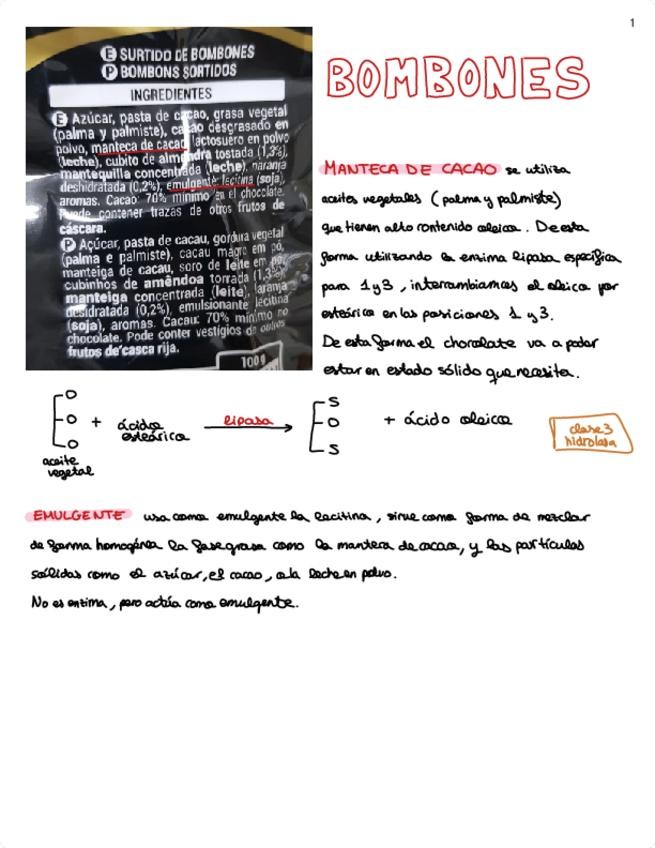 1
E SURTIDO DE BOMBONES
P BOMBONS SORTIDOS
INGREDIENTES
E Azúcar, pasta de cacao, grasa vegetal
(palma y palmiste), cacao desgrasado en
polvo, manteca de cacao, lactosuero en polvo
(leche), cubito de almendra tostada (1,3%),
mantequilla concentrada (leche), naranja
deshidratada (0,2%), emulgente: lecitina (soja),
aromas. Cacao: 70% mínimo en el chocolate.
Puede contener trazas de otros frutos de
cáscara.
P Açúcar, pasta de cacau, gordura vegetal
(palma e palmiste), cacau magro em pó,
manteiga de cacau, soro de leite em pó,
cubinhos de amêndoa torrada (1,3%),
manteiga concentrada (leite), laranja
desidratada (0,2%), emulsionante lecitina
(soja), aromas. Cacau: 70% mínimo no
chocolate. Pode conter vestígios de outros
frutos de casca rija.
100g
BOMBONES
MANTECA DE CACAO se utiliza
aceites vegetales (palma y palmiste)
que tienen alto contenido oleico. De esta
forma utilizando la enzima lipasa específica
para 1 y 3, intercambiamos el oleico por
esteárico en las posiciones 1 y 3.
De esta forma el chocolate va a poder
estar en estado sólido que necesita.
O
O + ácido esteárico lipasa
O
aceite vegetal
S
O + ácido oleico
S
clase 3
hidrolasa
EMULGENTE usa como emulgente la lecitina, sirve como forma de mezclar
de forma homogénea la fase grasa como la manteca de cacao, y las partículas
sólidas como el azúcar, el cacao, o la leche en polvo.
No es enzima, pero actúa como emulgente.